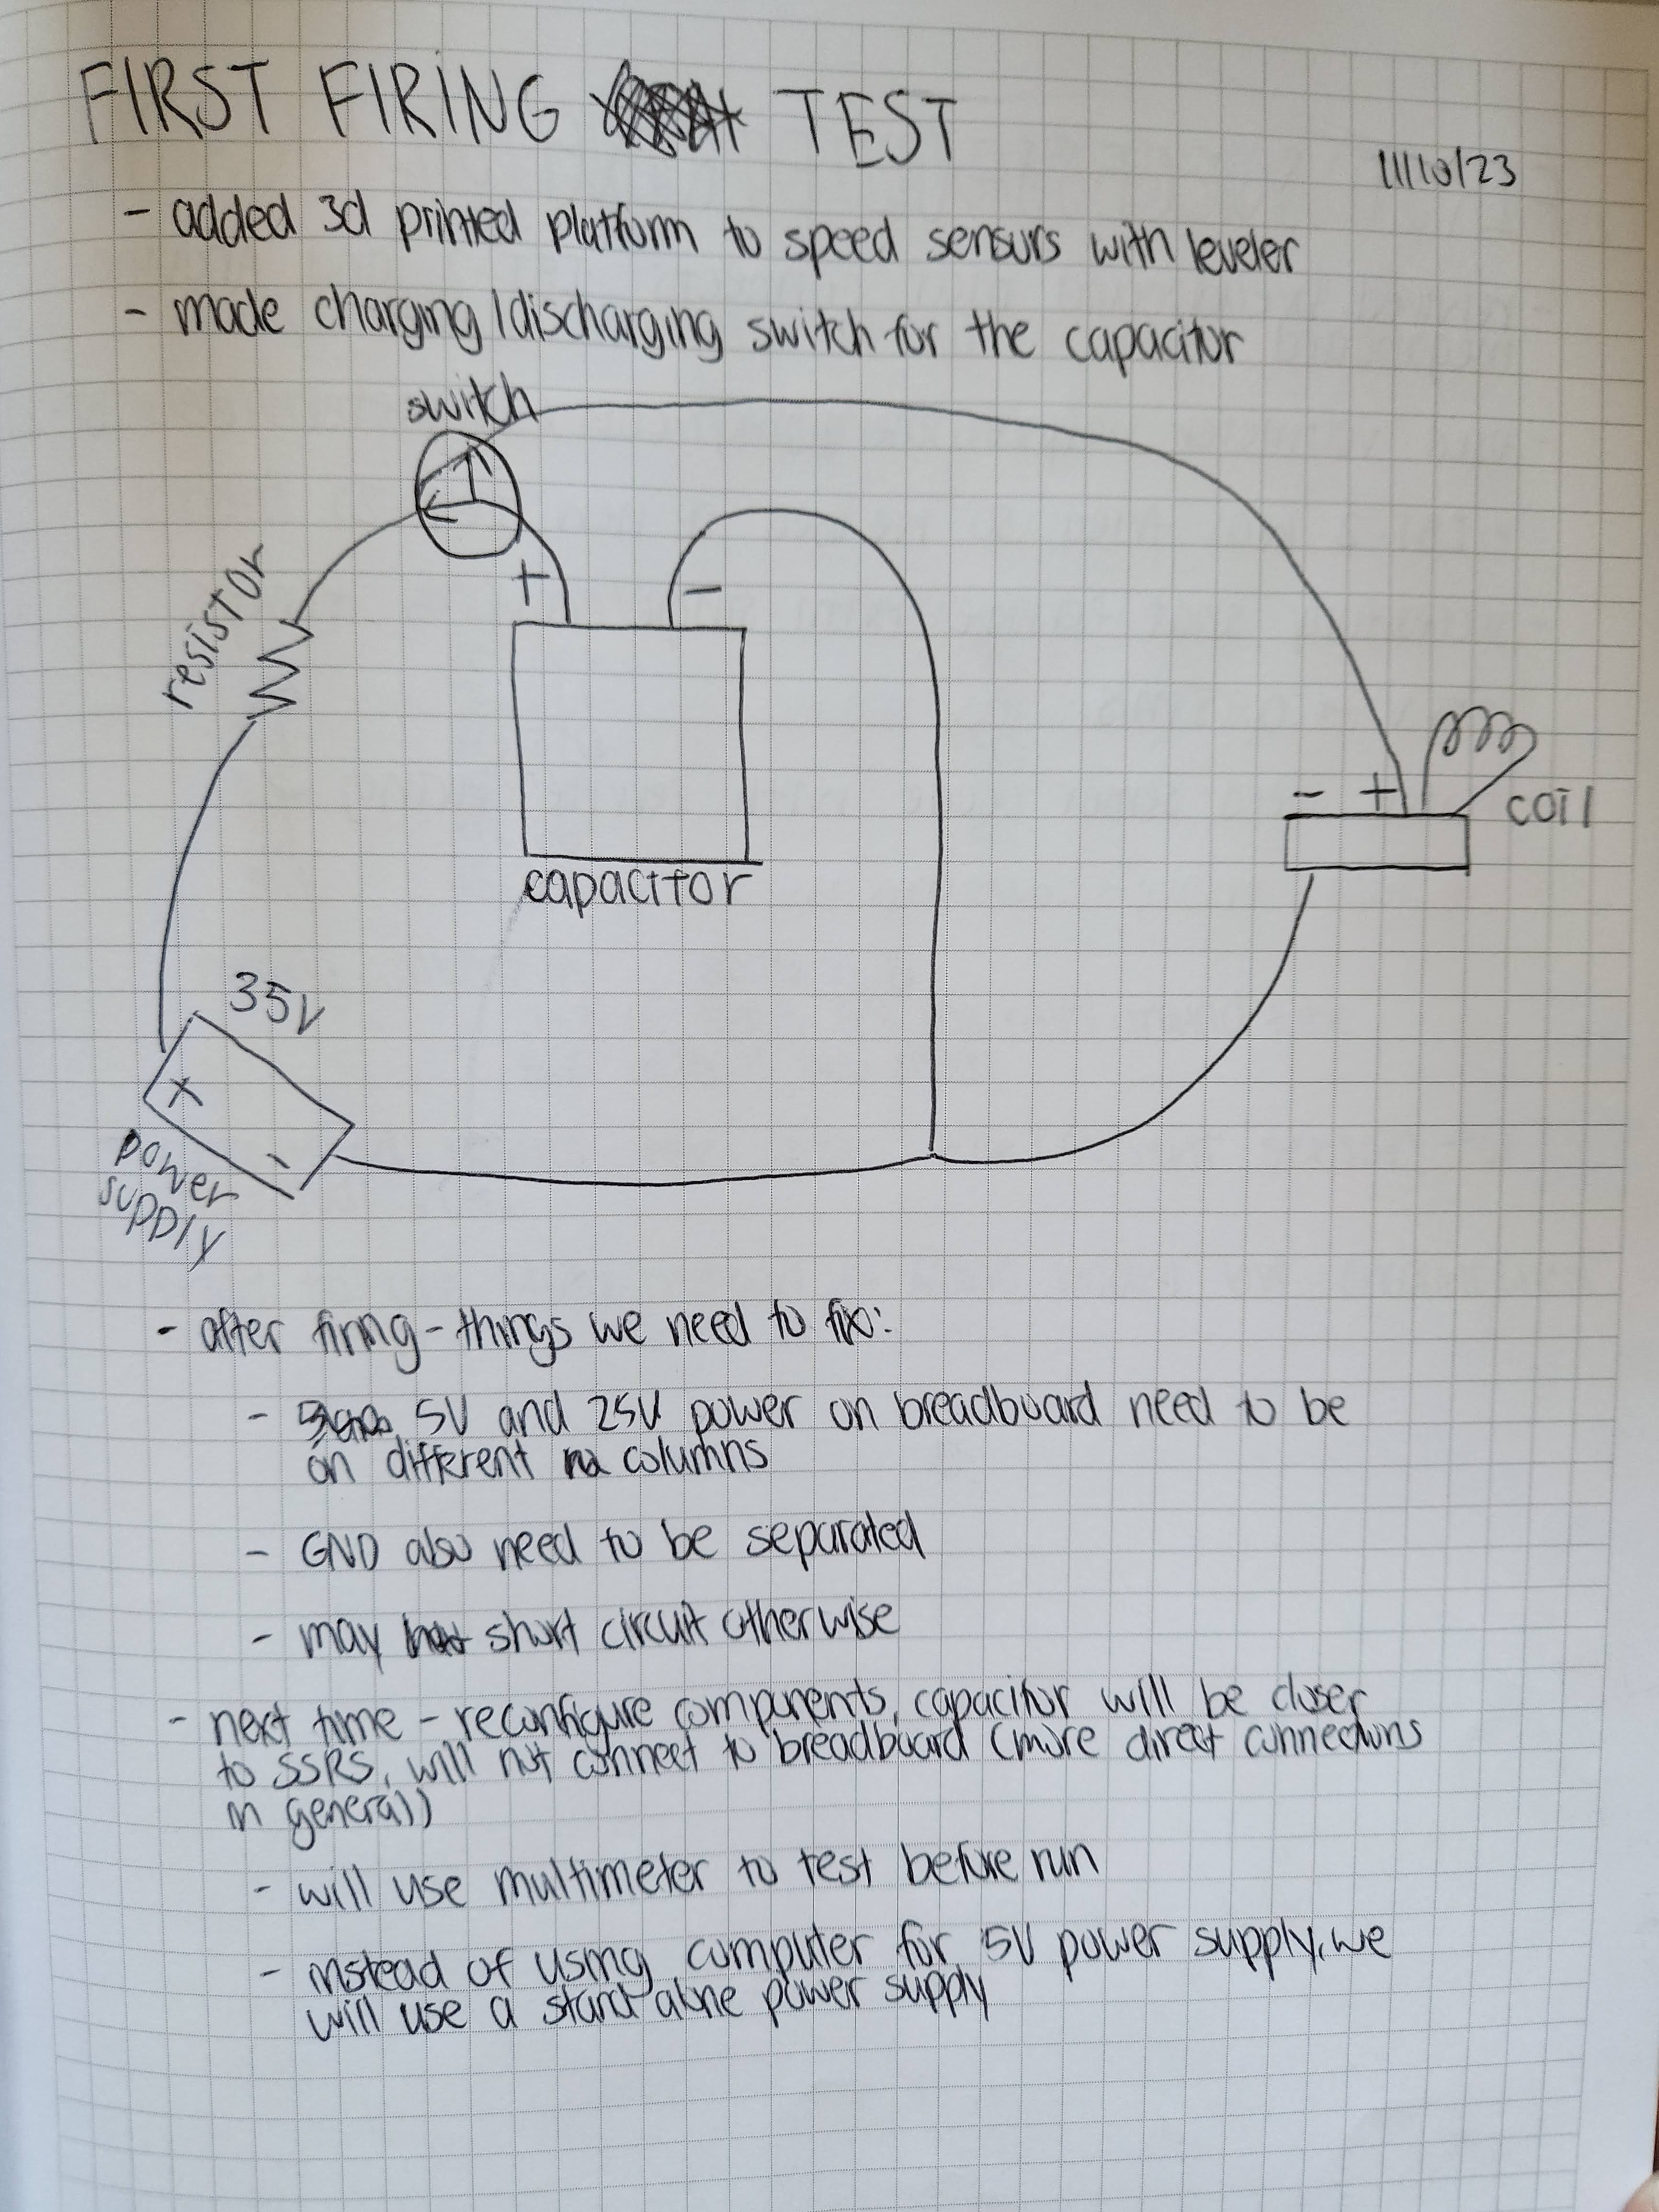 FIRST FIRING TEST
11/10/23
- added 3d printed platform to speed sensors with leveler
- made charging/discharging switch for the capacitor
switch
resistor
+
-
capacitor
- +
coil
35V
+
-
power
supply
- after firing - things we need to fix:
- 5V and 25V power on breadboard need to be
on different columns
- GND also need to be separated
- may short circuit otherwise
- next time - reconfigure components, capacitor will be closer
to SSRS, will not connect to breadboard (more direct connections
in general)
- will use multimeter to test before run
- instead of using computer for 5V power supply, we
will use a stand alone power supply